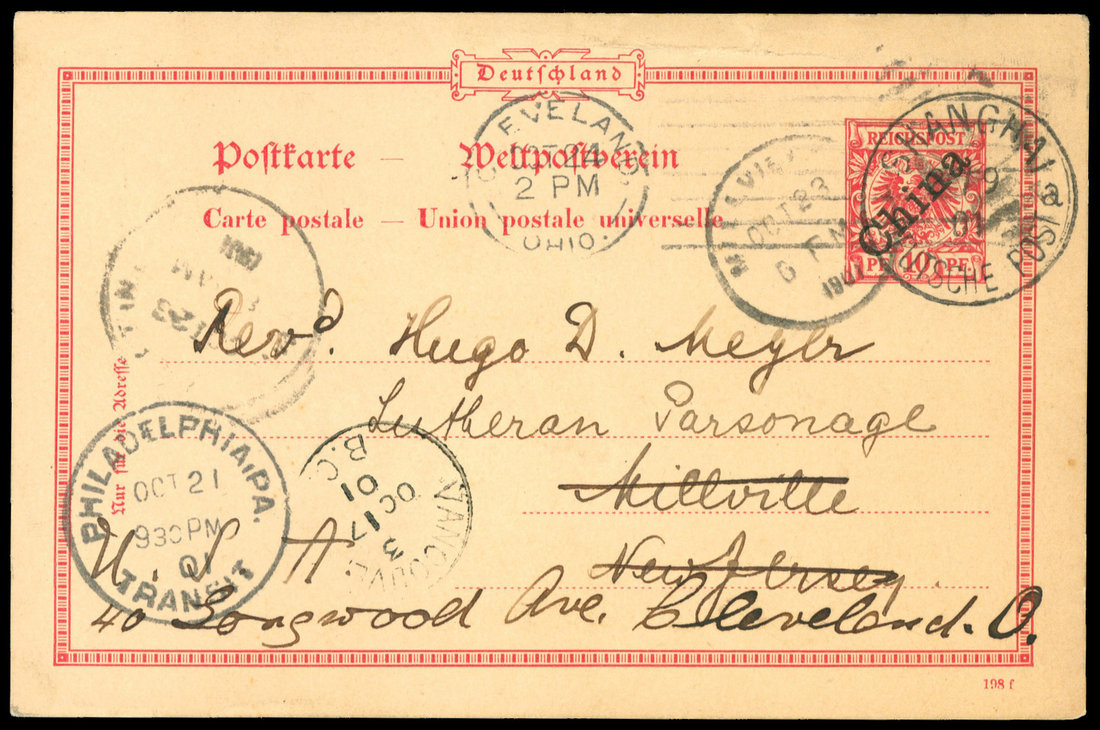 Deutschland
Postkarte — Weltpostverein
Carte postale — Union postale universelle
REICHSPOST
China
PF 10 PF
SHANGHAI a
01
DEUTSCHE POST
CLEVELAND
OCT 24
2 PM
OHIO.
OCT 23
6
1901
Revd. Hugo D. Meyer
Lutheran Parsonage
Millville
New Jersey
U. S. A
40 Longwood Ave. Cleveland. O.
Nur für die Adresse
PHILADELPHIA, PA.
OCT 21
930 PM
01
TRANSIT
VANCOUVER
B.C
OC 17
01
198 f